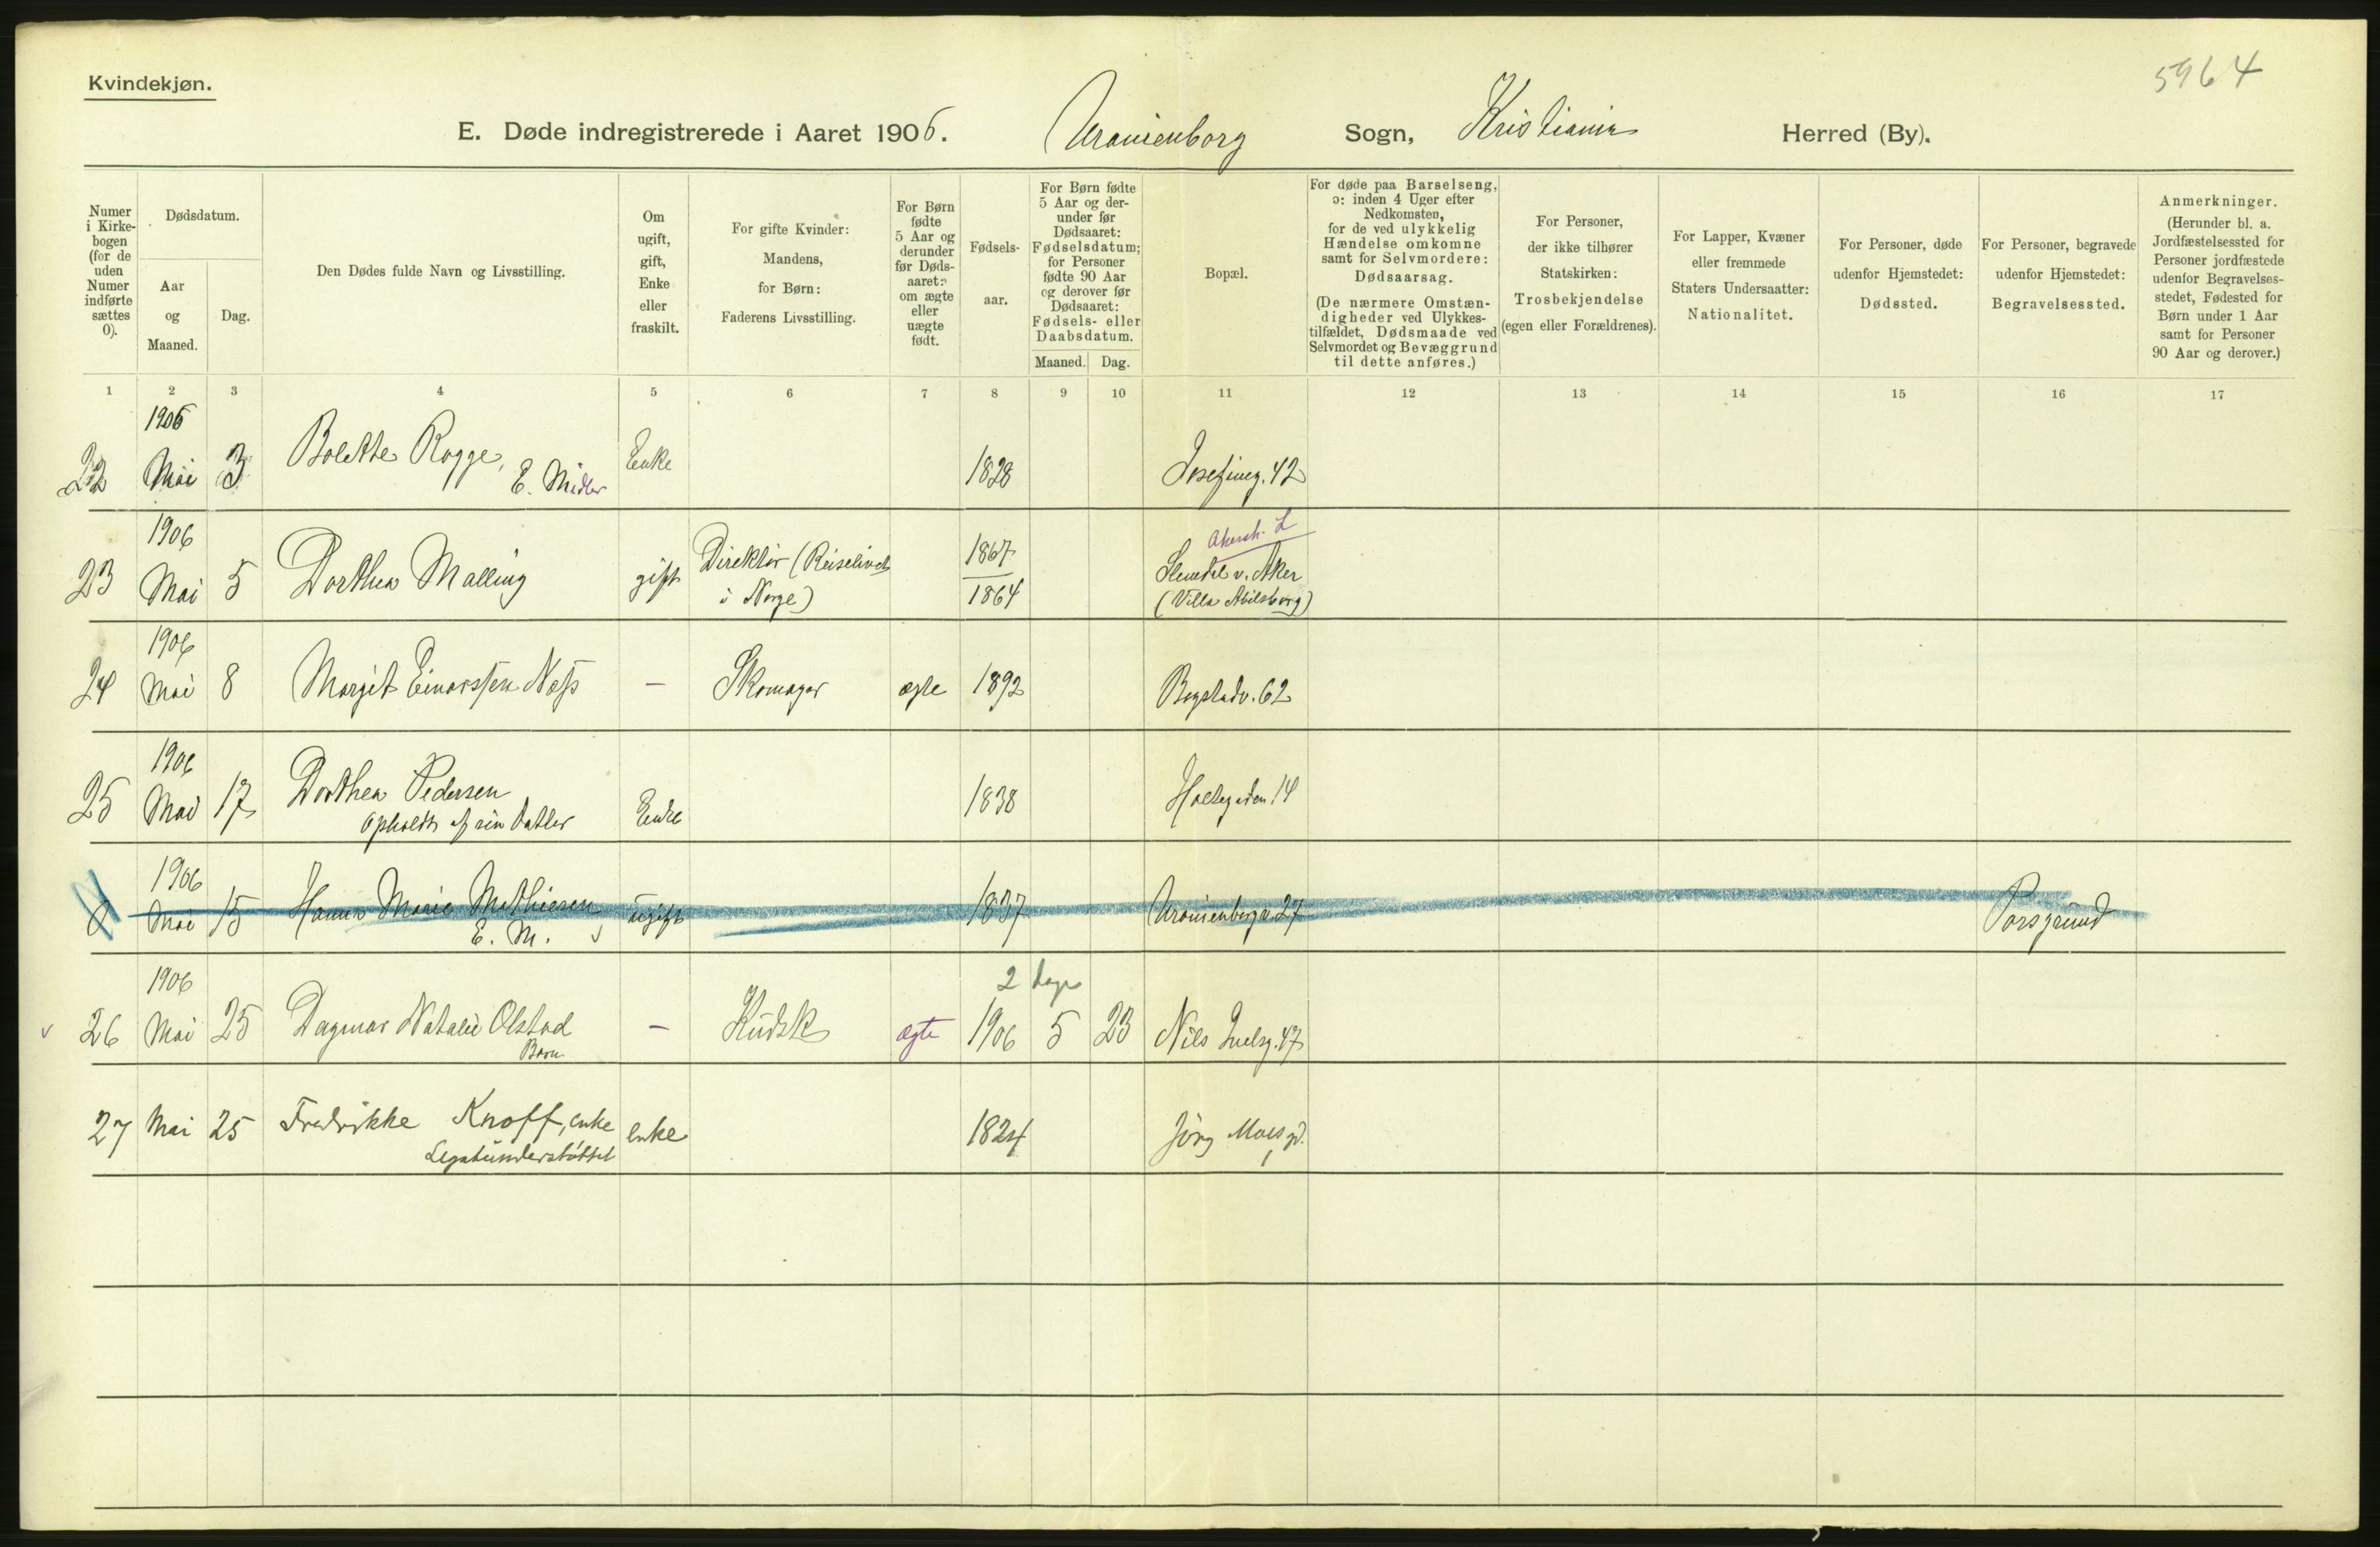 Kvindekjøn.
5964
E. Døde indregistrerede i Aaret 1906. Uranienborg Sogn, Kristiania Herred (By).
Numer i Kirkebogen (for de uden Numer indførte sættes 0).
Dødsdatum.
Aar og Maaned.
Dag.
Den Dødes fulde Navn og Livsstilling.
Om ugift, gift, Enke eller fraskilt.
For gifte Kvinder: Mandens, for Børn: Faderens Livsstilling.
For Børn fødte 5 Aar og derunder før Dødsaaret: om ægte eller uægte født.
Fødselsaar.
For Børn fødte 5 Aar og derunder før Dødsaaret: Fødselsdatum; for Personer fødte 90 Aar og derover før Dødsaaret: Fødsels- eller Daabsdatum.
Maaned. Dag.
Bopæl.
For døde paa Barselseng, ɔ: inden 4 Uger efter Nedkomsten, for de ved ulykkelig Hændelse omkomne samt for Selvmordere: Dødsaarsag.
(De nærmere Omstændigheder ved Ulykkestilfældet, Dødsmaade ved Selvmordet og Bevæggrund til dette anføres.)
For Personer, der ikke tilhører Statskirken: Trosbekjendelse (egen eller Forældrenes).
For Lapper, Kvæner eller fremmede Staters Undersaatter: Nationalitet.
For Personer, døde udenfor Hjemstedet: Dødssted.
For Personer, begravede udenfor Hjemstedet: Begravelsessted.
Anmerkninger.
(Herunder bl. a. Jordfæstelsessted for Personer jordfæstede udenfor Begravelsesstedet, Fødested for Børn under 1 Aar samt for Personer 90 Aar og derover.)
1 2 3 4 5 6 7 8 9 10 11 12 13 14 15 16 17
1906
22 Mai 3 Bolette Rogge, Enke 1828 Josefineg. 42
E. Midler
1906 1867 Akersh. L
23 Mai 5 Dorthea Malling gift Direktør (Reiselivet i Norge) 1864 v. Aker
(Villa Abilsborg)
1906
24 Mai 8 Margit Einarssen Næss — Skomager ægte 1892 Bogstadv. 62
1906
25 Mai 17 Dorthea Pedersen Enke 1838 Holtegaden 14
Opholdt af sin Datter
1906
0 Mai 15 Hanna Marie Mathiesen ugift 1837 Uranienborgv. 27 Porsgrund
E. M.
1906 2 dage
26 Mai 25 Dagmar Natalie Olstad — Kudsk ægte 1906 5 23 Niels Juelsg. 47
Barn
27 Mai 25 Fredrikke Knoff, enke enke 1824 Jørg Moes gd.
Legatunderstøttet